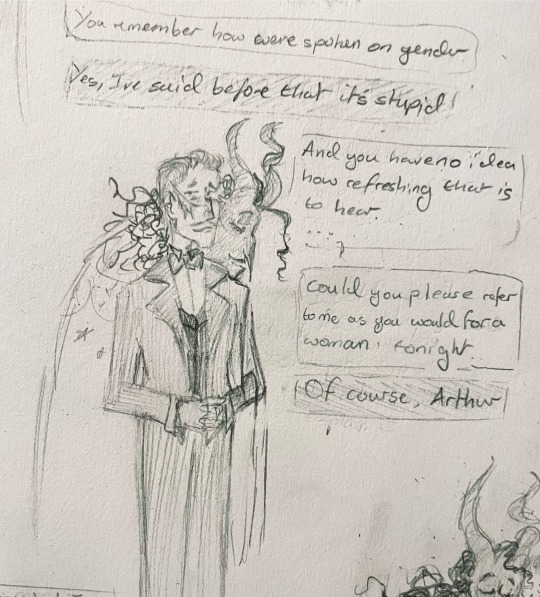 You remember how were spoken on gender
Yes, I've said before that it's stupid!
And you have no idea
how refreshing that is
to hear.
Could you please refer
to me as you would for a
woman tonight
Of course, Arthur